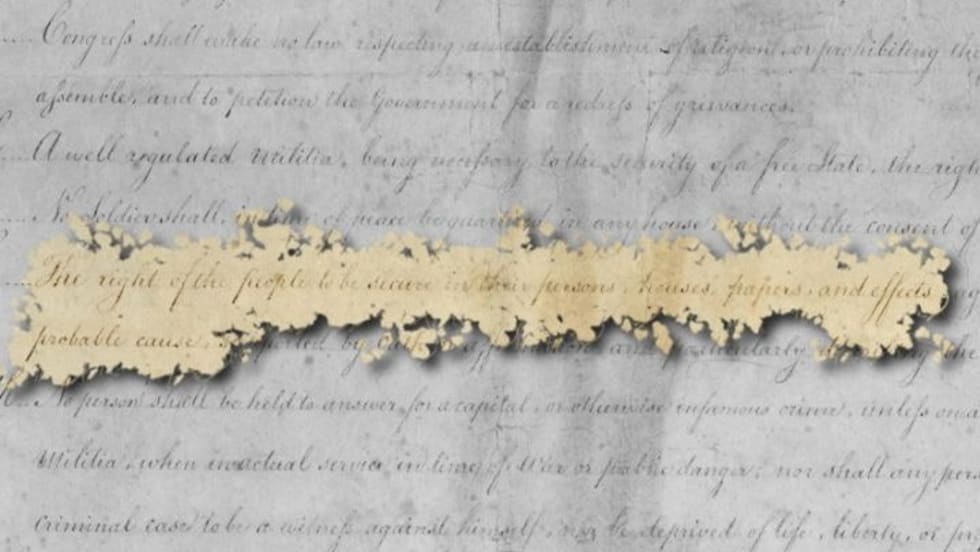 Congreſs shall make no law respecting an establishment of religion, or prohibiting the
aſsemble, and to petition the Government for a redreſs of grievances.
A well regulated Militia, being neceſsary to the security of a free State, the right
No Soldier shall, in time of peace be quartered in any house, without the consent of
The right of the people to be secure in their persons, houses, papers, and effects,
probable cause, supported by Oath or affirmation, and particularly describing the
No person shall be held to answer for a capital, or otherwise infamous crime, unleſs on a
Militia, when in actual service in time of War or public danger; nor shall any
criminal case to be a witneſs against himself, nor be deprived of life, liberty, or